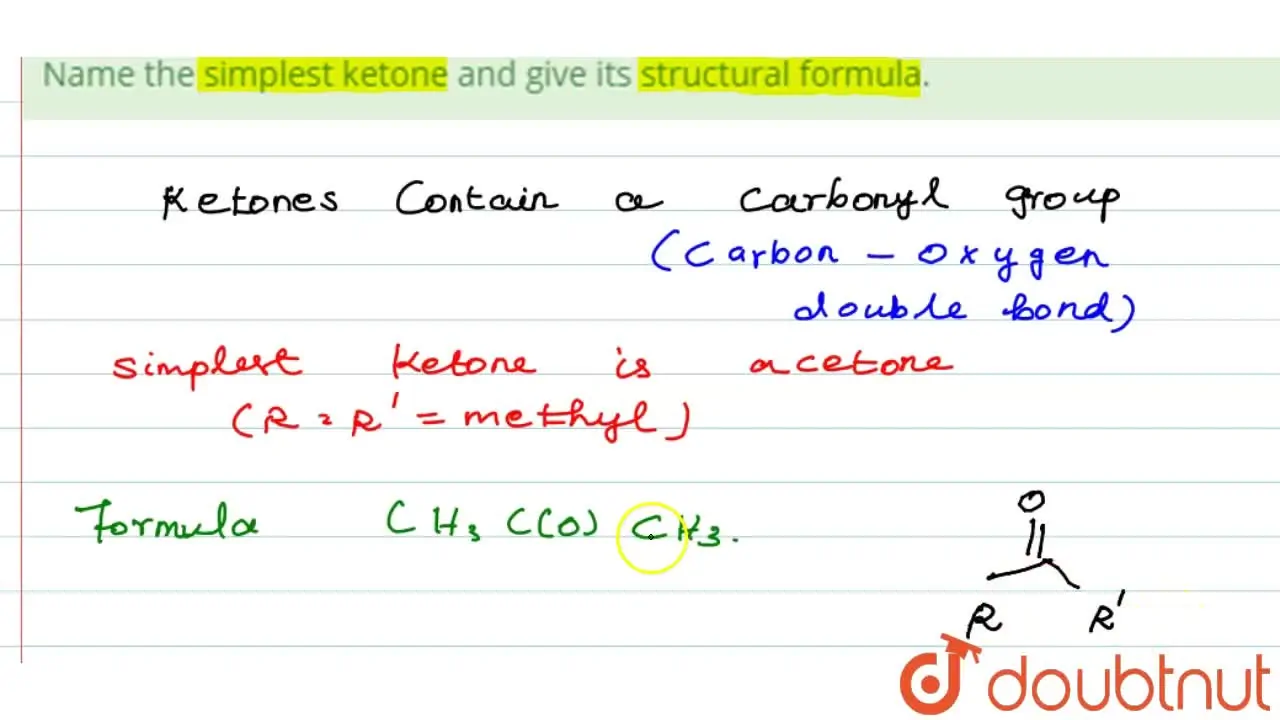 Name the simplest ketone and give its structural formula.
Ketones Contain a Carbonyl group
(Carbon - Oxygen
double bond)
Simplest Ketone is acetone
(R = R' = methyl)
Formula CH3 C(O) CH3.
O
R R'
doubtnut